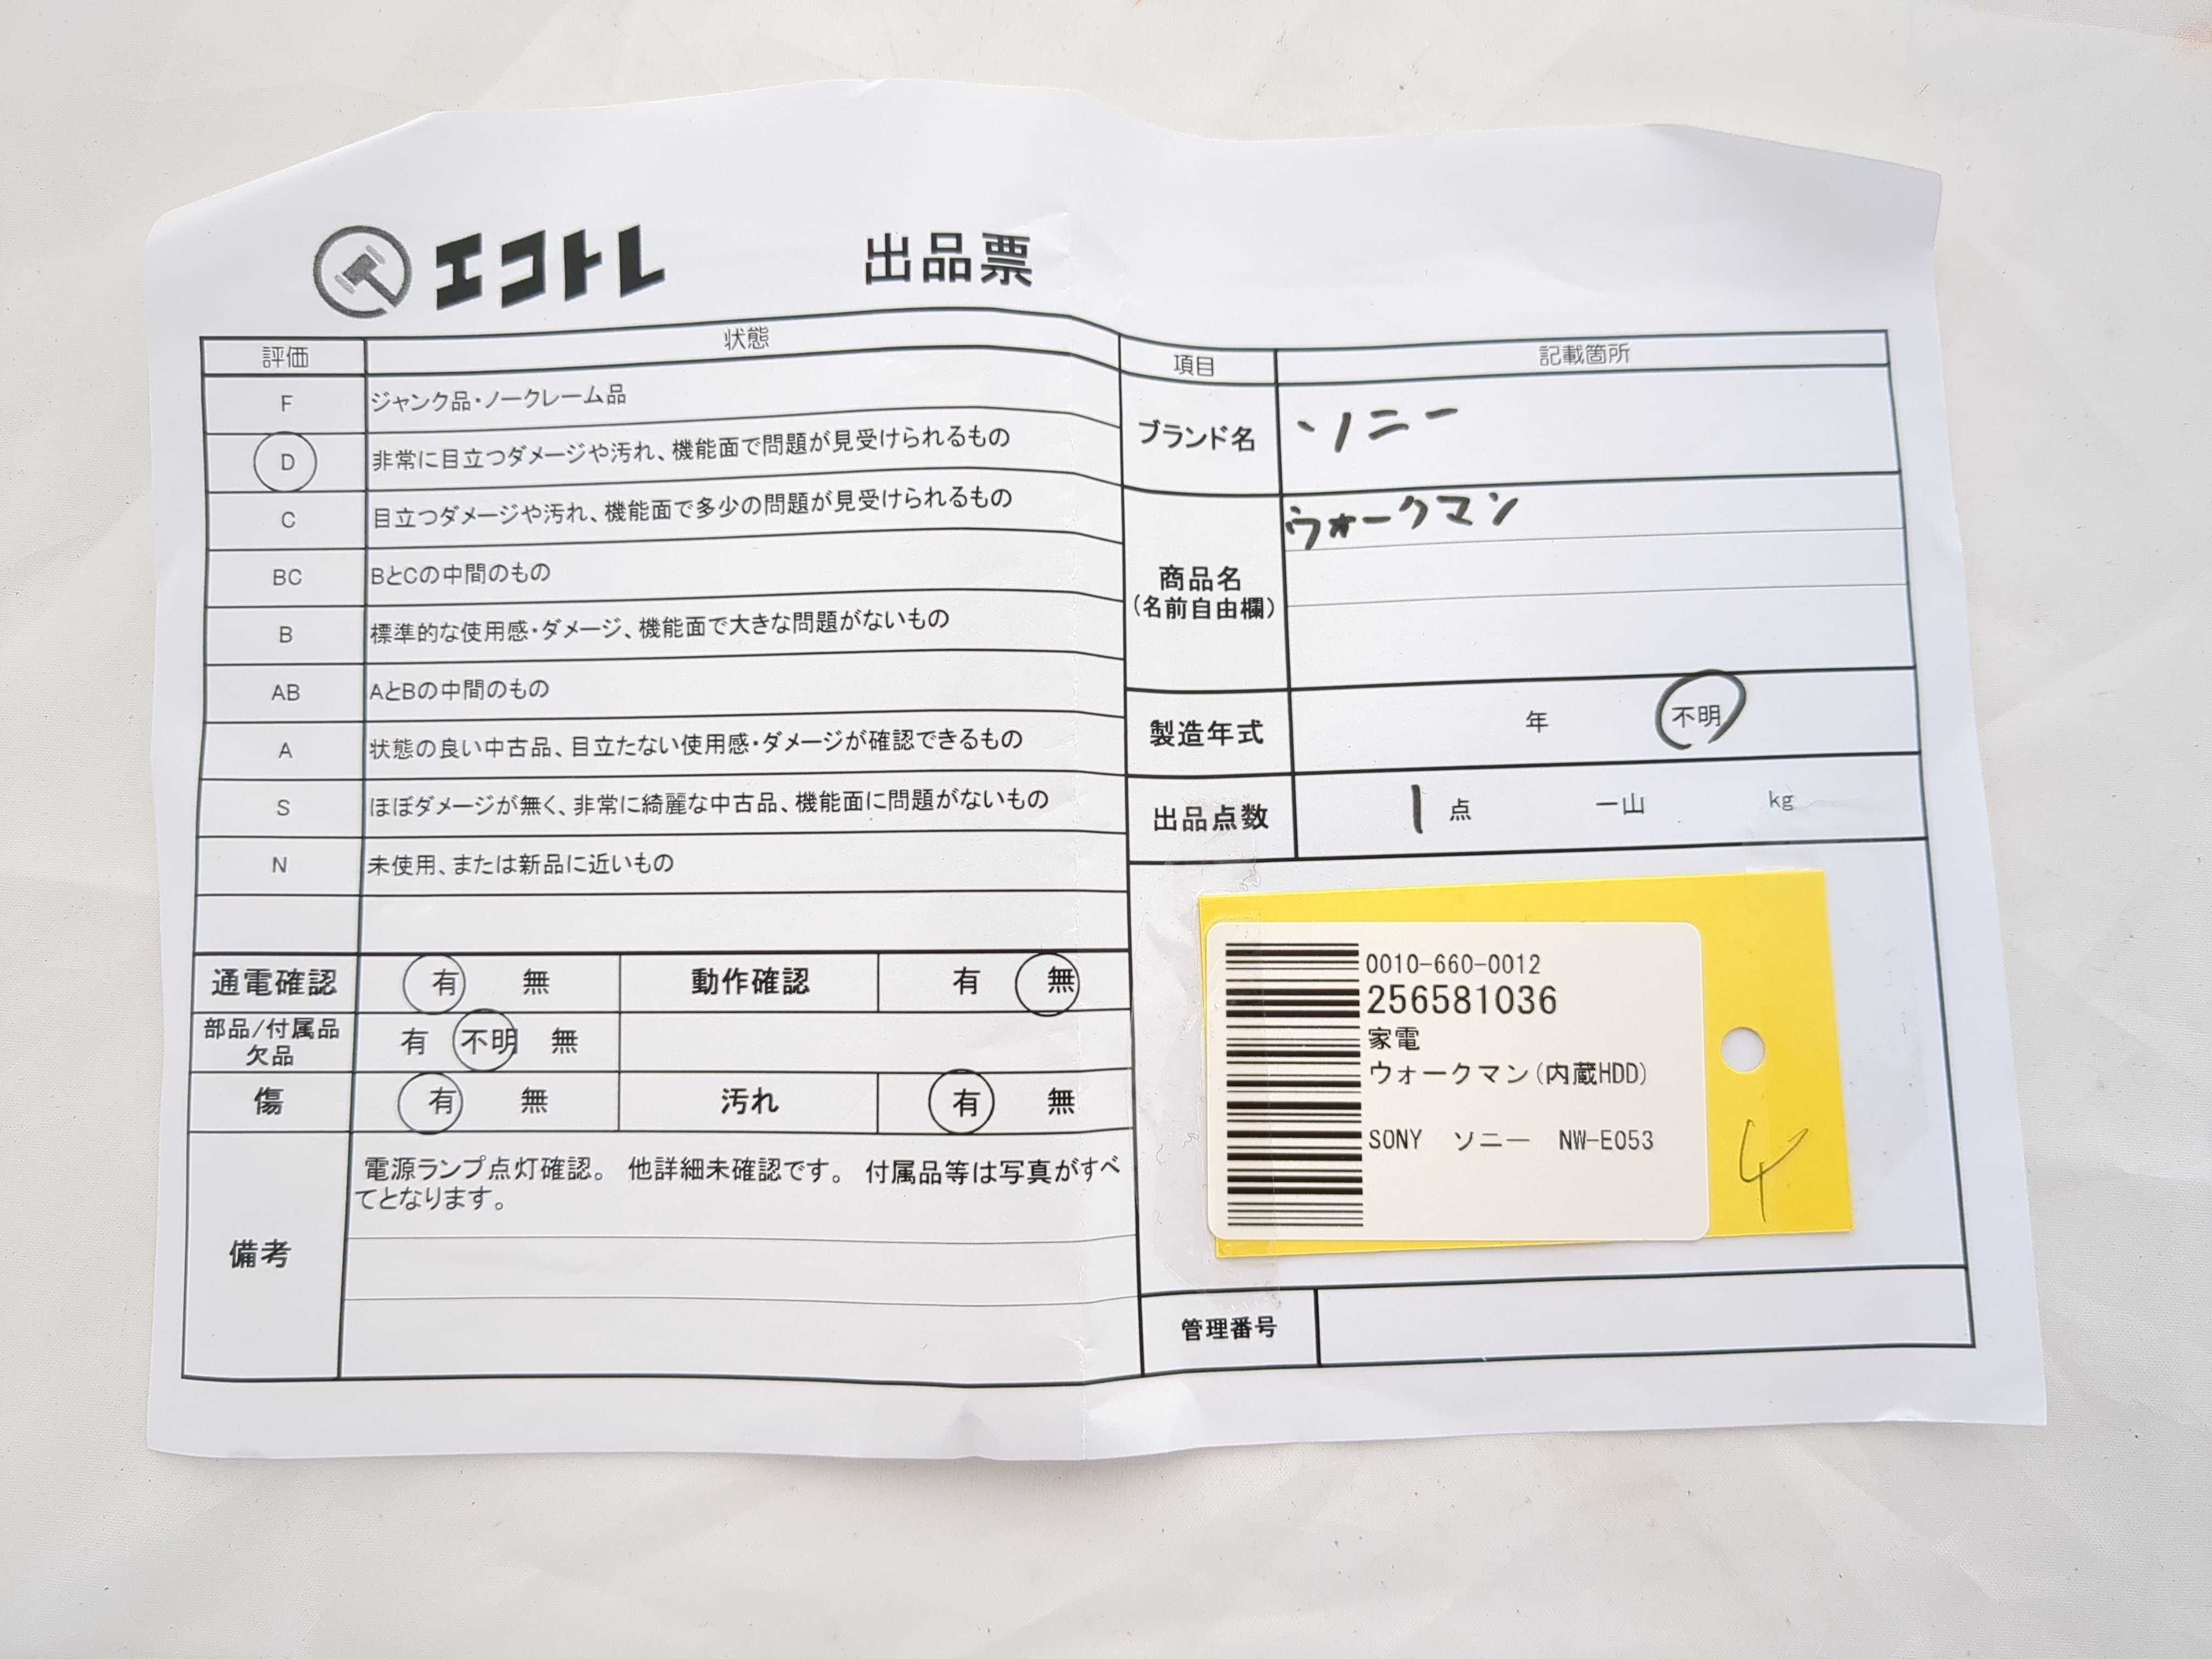 エコトレ 出品票
評価 状態
F ジャンク品・ノークレーム品
D 非常に目立つダメージや汚れ、機能面で問題が見受けられるもの
C 目立つダメージや汚れ、機能面で多少の問題が見受けられるもの
BC BとCの中間のもの
B 標準的な使用感・ダメージ、機能面で大きな問題がないもの
AB AとBの中間のもの
A 状態の良い中古品、目立たない使用感・ダメージが確認できるもの
S ほぼダメージが無く、非常に綺麗な中古品、機能面に問題がないもの
N 未使用、または新品に近いもの
通電確認 有 無 動作確認 有 無
部品/付属品
欠品 有 不明 無
傷 有 無 汚れ 有 無
備考
電源ランプ点灯確認。 他詳細未確認です。 付属品等は写真がすべ
てとなります。
項目 記載箇所
ブランド名 ソニー
商品名
(名前自由欄)
ウォークマン
製造年式 年 不明
出品点数 1 点 一山 kg
0010-660-0012
256581036
家電
ウォークマン(内蔵HDD)
SONY ソニー NW-E053
4
管理番号